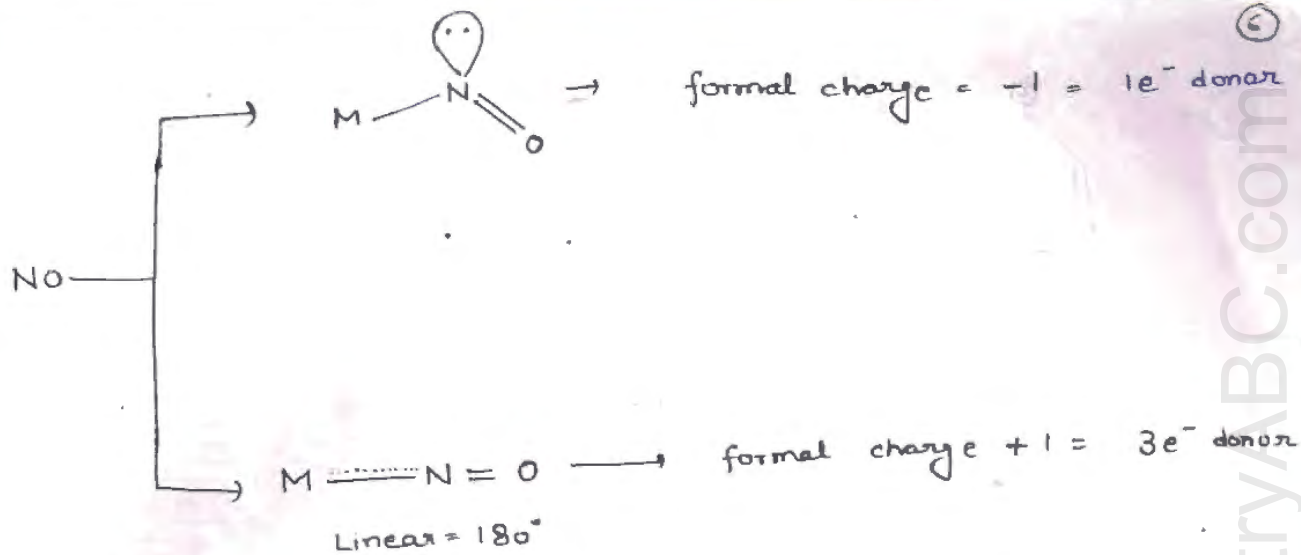 6
M N O → formal charge = -1 = 1e⁻ donar
NO
M N = O → formal charge + 1 = 3e⁻ donor
Linear = 180°
ryABC.com